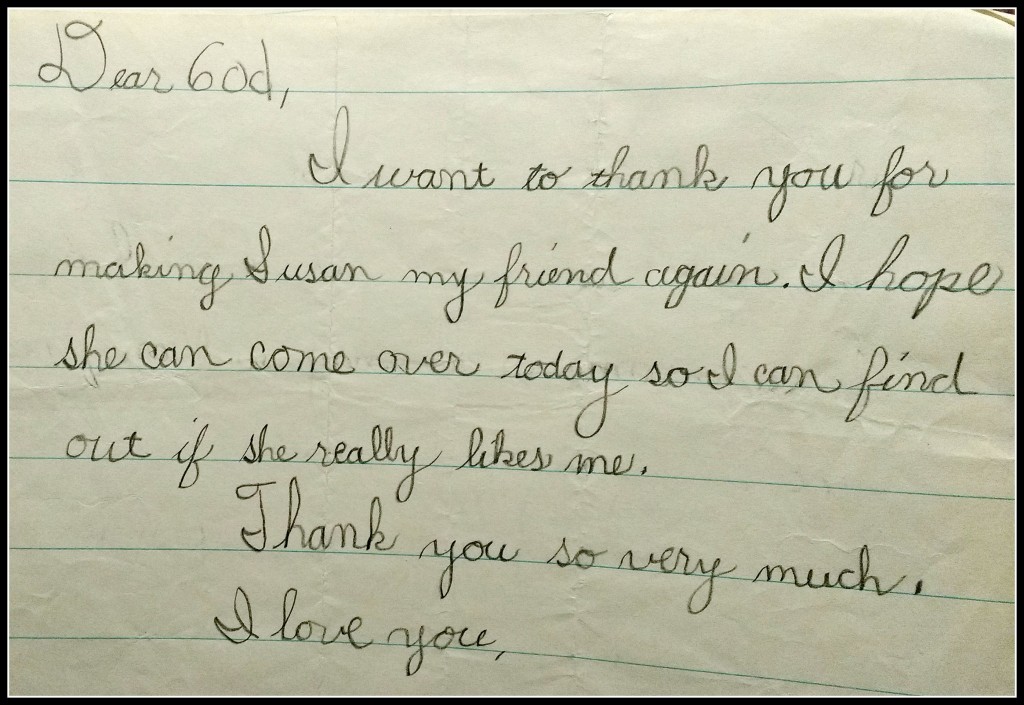 Dear God,
I want to thank you for
making Susan my friend again. I hope
she can come over today so I can find
out if she really likes me.
Thank you so very much.
I love you,